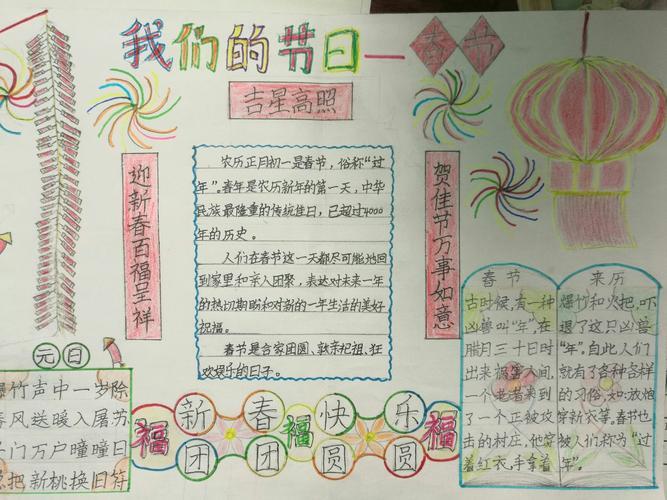 我们的节日—春节
吉星高照
迎新春百福呈祥
农历正月初一是春节，俗称“过
年”。春年是农历新年的第一天，中华
民族最隆重的传统佳日，已超过4000
年的历史。
人们在春节这一天都尽可能地回
到家里和亲人团聚，表达对未来一年
的热切期盼和对新的一年生活的美好
祝福。
春节是合家团圆、敦亲祀祖、狂
欢娱乐的日子。
贺佳节万事如意
元日
爆竹声中一岁除
春风送暖入屠苏
千门万户曈曈日
总把新桃换旧符
福 新春 福 快乐 福
团团 圆圆
春节
古时候，有一种
凶兽叫“年”，在
腊月三十日时
出来祸害人间，
一个老者来到
了一个正被攻
击的村庄，他穿
着红衣，手拿着
来历
爆竹和火把，吓
退了这只凶兽
“年”。自此人们
就有了各种各样
的习俗，如：放炮
穿新衣等。春节也
被人们称为“过
年”。